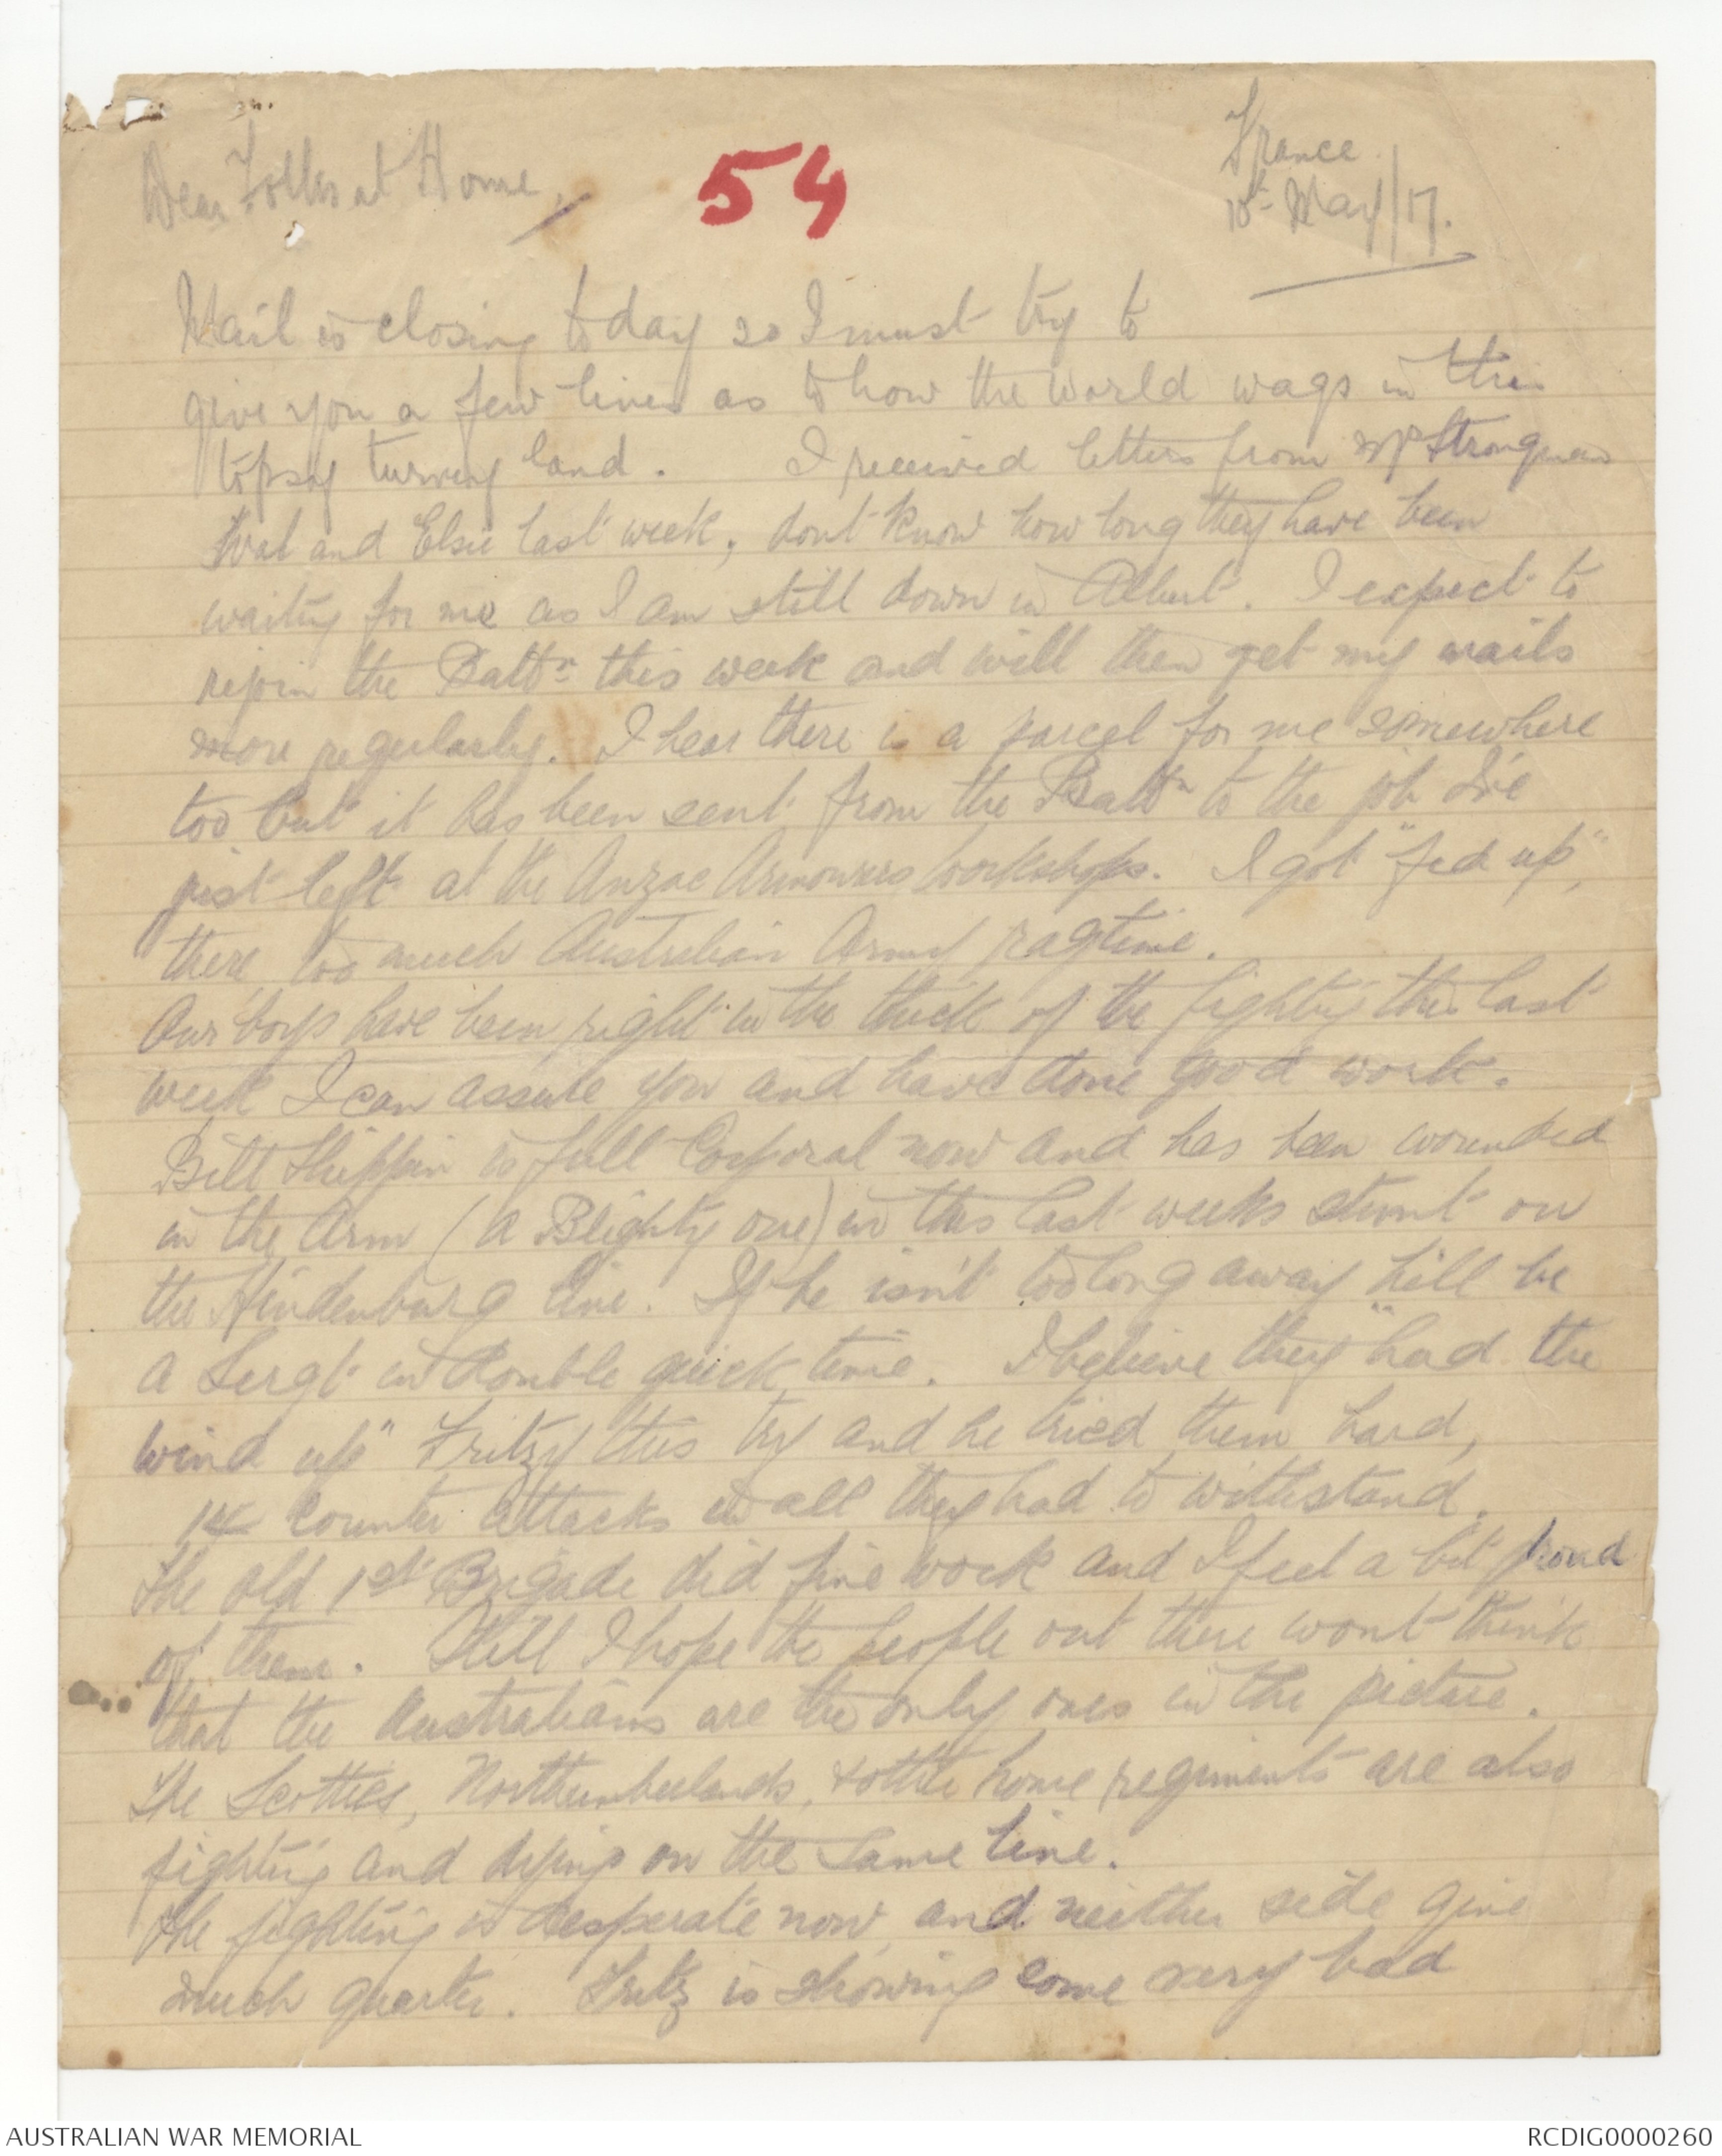 France
10th May/17.
Dear Folks at Home,
54
Mail is closing today so I must try to
give you a few lines as to how the world wags in this
topsy turvey land. I received letters from Mr Strongman
and Elsie last week, dont know how long they have been
waiting for me as I am still down in Albert. I expect to
rejoin the Battn this week and will then get my mails
more regularly. I hear there is a parcel for me somewhere
too but it has been sent from the Battn to the job I've
just left at the Anzac Armourers Workshops. I got "fed up",
there, too much Australian Army ragtime.
Our boys have been right in the thick of the fighting this last
week I can assure you and have done good work.
Bill Shippin is full Corporal now and has been wounded
in the arm (a Blighty one) in this last weeks stunt on
the Hindenburg line. If he isn't too long away he'll be
a Sergt in double quick time. I believe they "had the
wind up" Fritzy this try and he tried them hard,
14 counter attacks in all they had to withstand.
The old 1st Brigade did fine work and I feel a bit proud
of them. Still I hope the people out there wont think
that the Australians are the only ones in the picture.
The Scotties, Northumberlands, & other home regiments are also
fighting and dying on the same line.
The fighting is desperate now, and neither side give
much quarter. Fritz is showing some very bad
AUSTRALIAN WAR MEMORIAL
RCDIG0000260